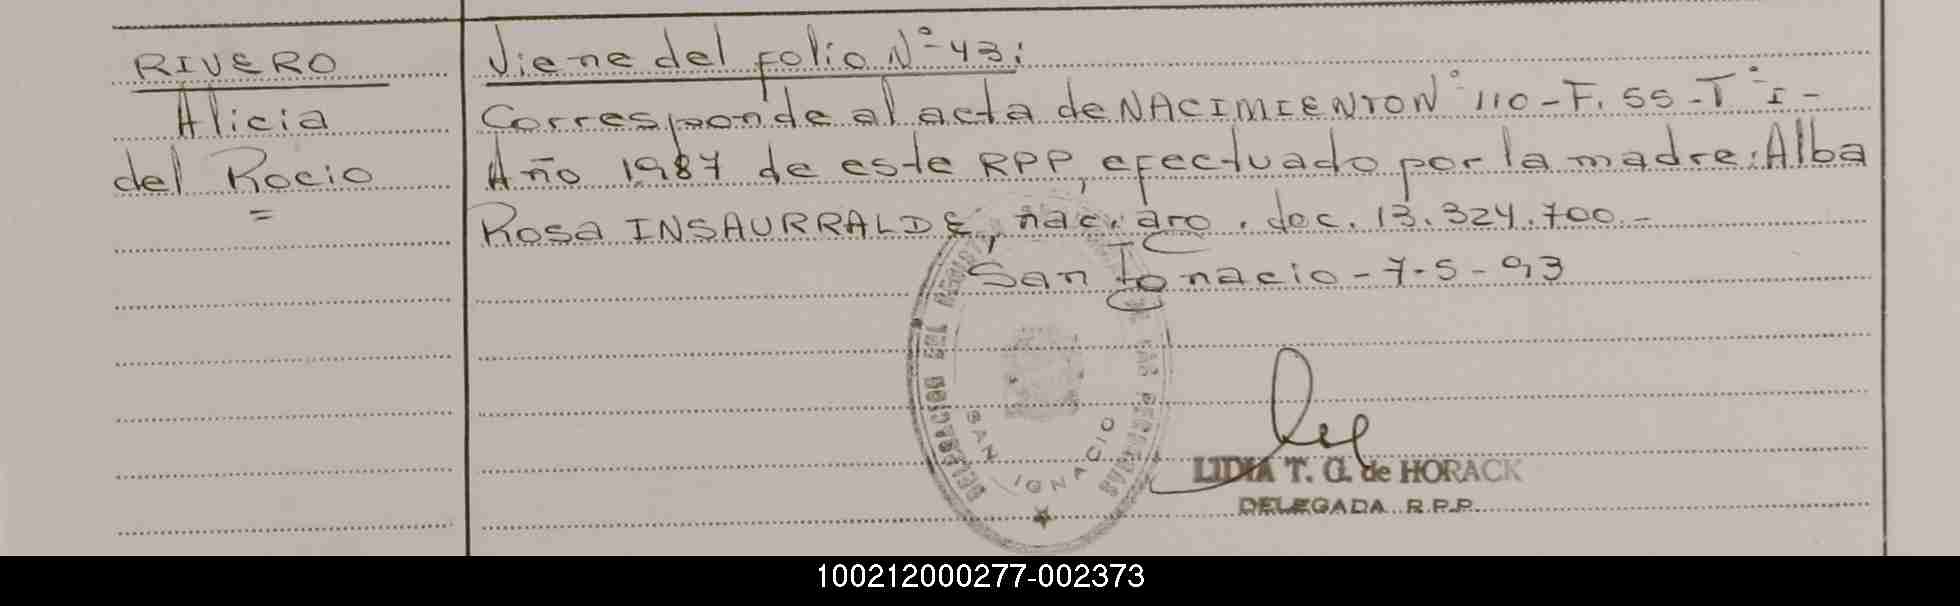 RIVERO
Alicia
del Rocio
=
Viene del folio Nº 43:
Corresponde al acta de NACIMIENTO Nº 110 - F. 55 - Tº I -
Año 1987 de este RPP, efectuado por la madre: Alba
Rosa INSAURRALDE, nac. arg. doc. 13.324.700 -
San Ignacio - 7-5-93
SAN IGNACIO
LIDIA T. G. de HORACK
DELEGADA R.P.P.
100212000277-002373